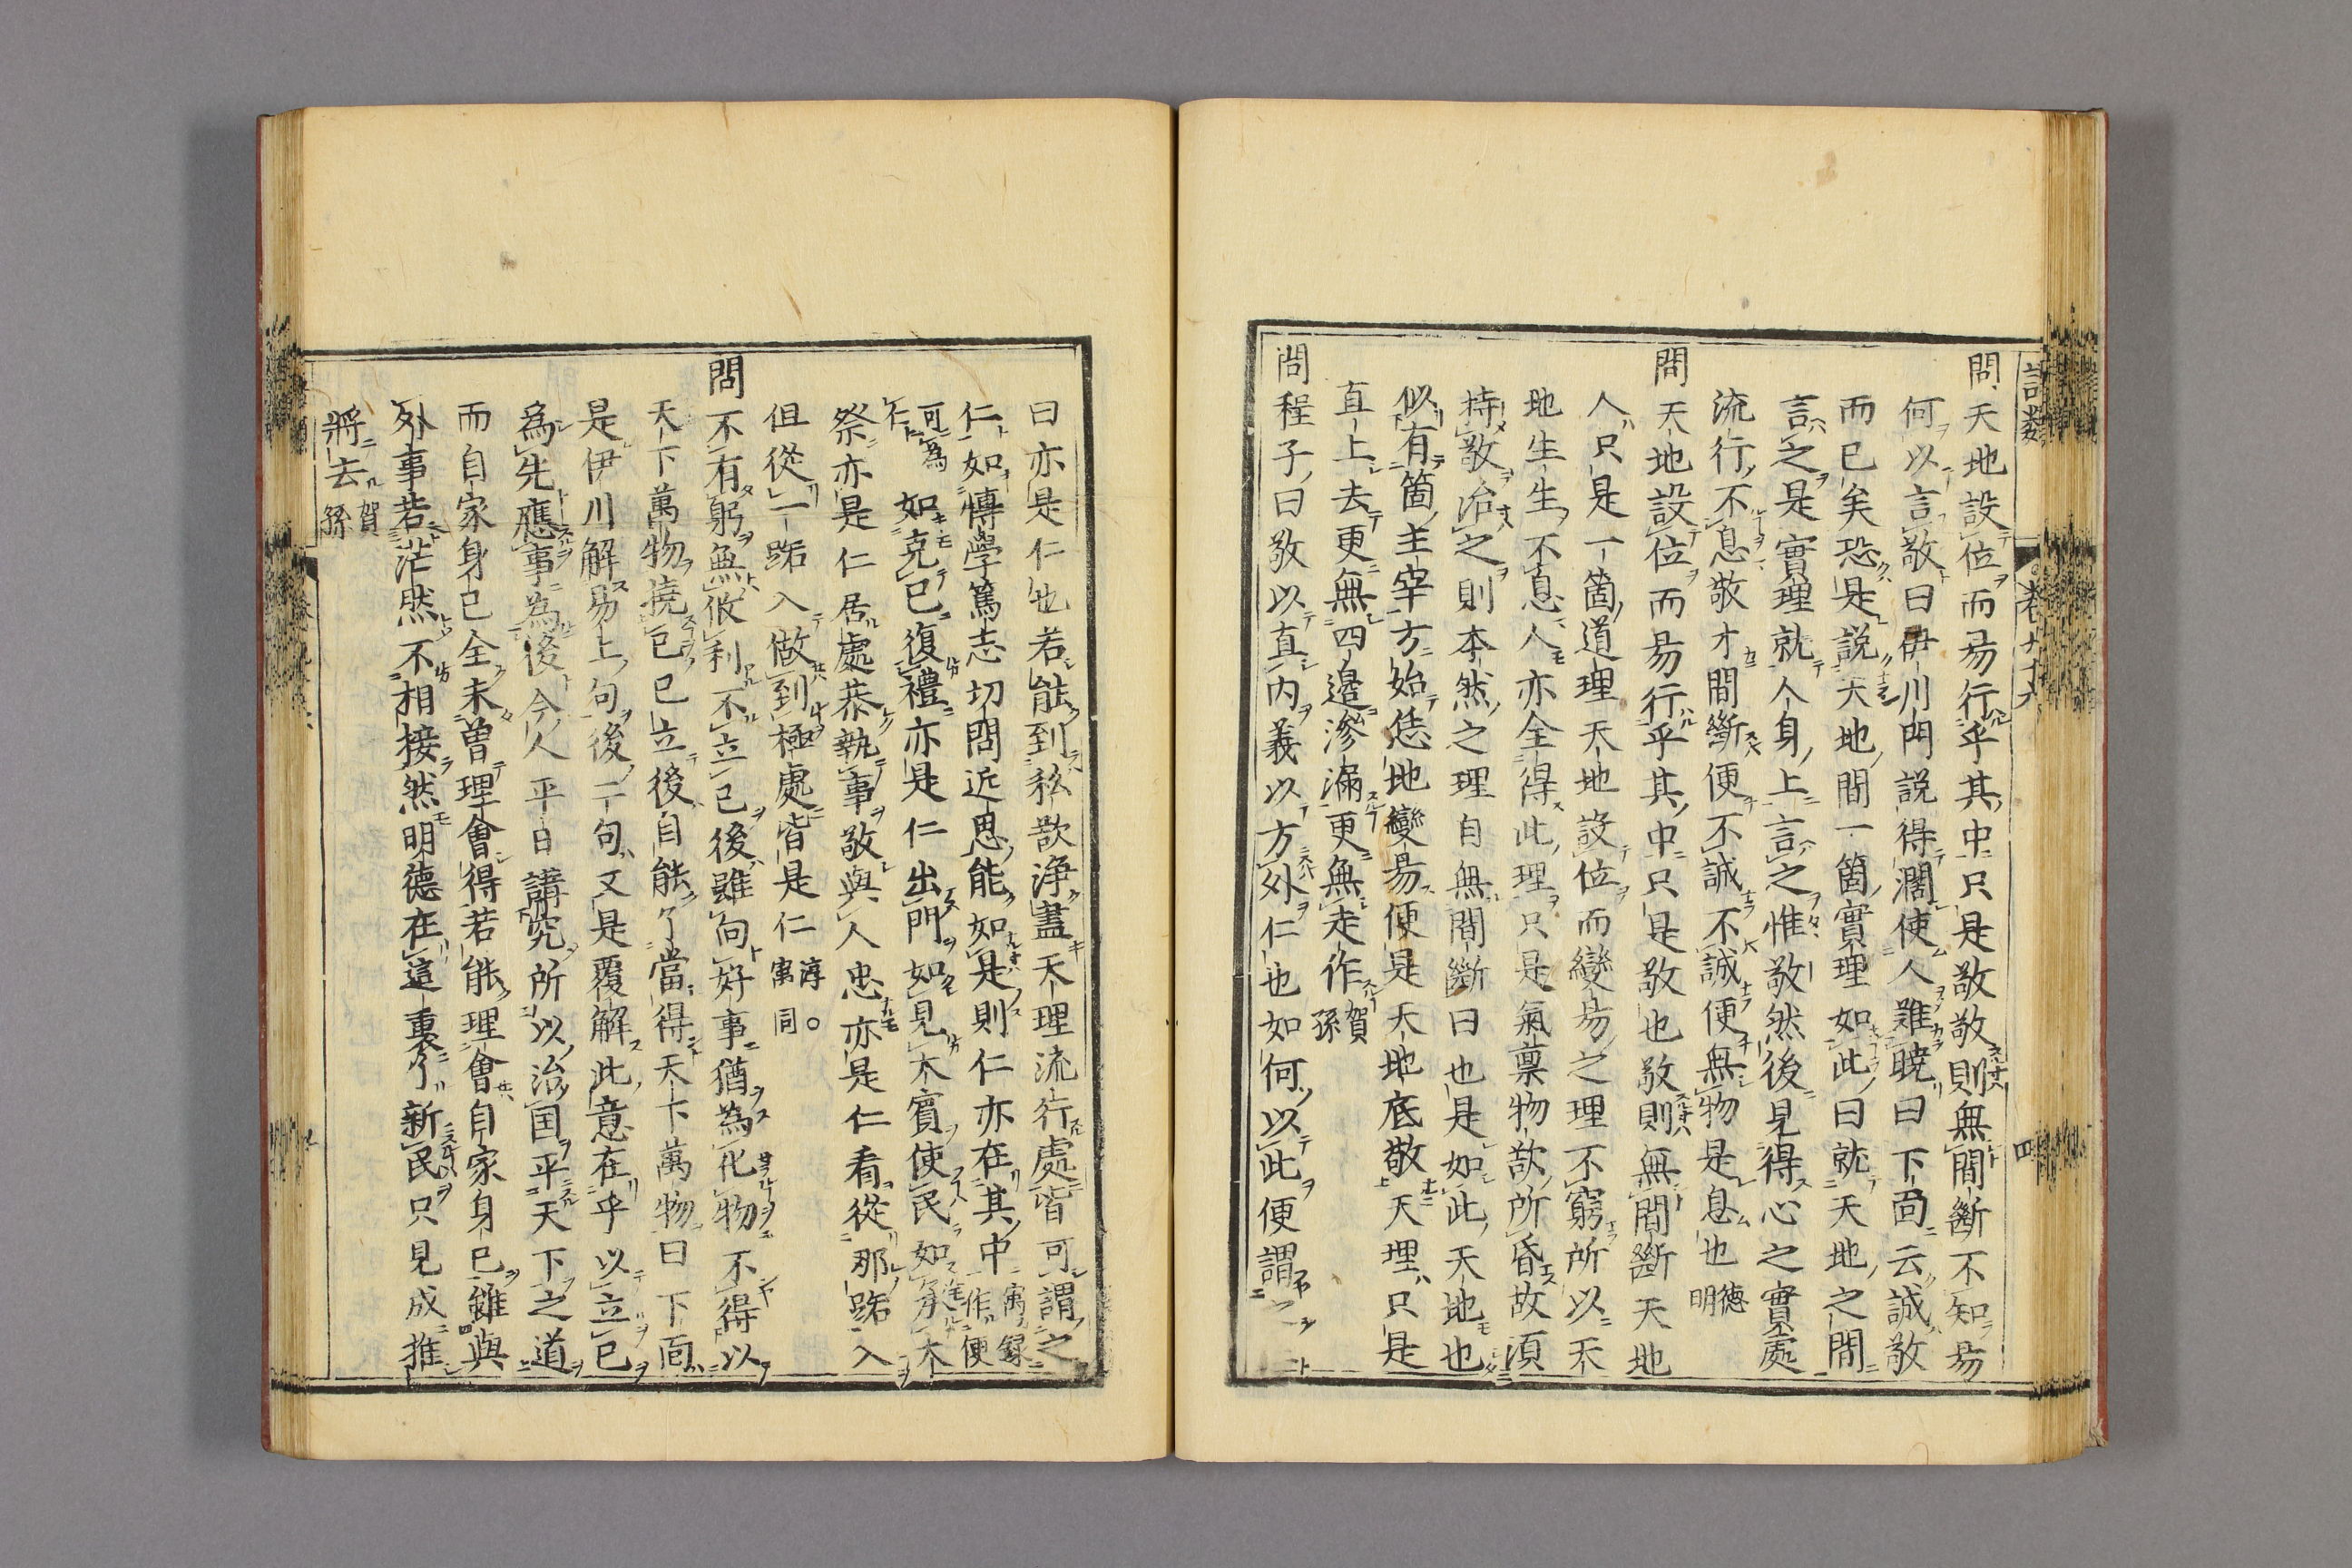 語類
卷九十六
四
問天地設位而易行乎其中只是敬敬則無間斷不知易
何以言敬曰伊川門説得濶使人難曉曰下面云誠敬
而已矣恐是説天地間一箇實理如此曰就天地之間
言之是實理就人身上言之惟敬然後見得心之實處
流行不息敬才間斷便不誠不誠便無物是息也德明
問天地設位而易行乎其中只是敬也敬則無間斷天地
人只是一箇道理天地設位而變易之理不窮所以天
地生生不息人亦全得此理只是氣禀物欲所昏故須
持敬治之則本然之理自無間斷曰也是如此天地也
似有箇主宰方始恁地變易便是天地底敬天理只是
直上去更無四邊滲漏更無走作賀孫
問程子曰敬以直内義以方外仁也如何以此便謂之
曰亦是仁也若能到私欲淨盡天理流行處皆可謂之
仁如博學篤志切問近思能如是則仁亦在其中寓録作便
可為仁如克已復禮亦是仁出門如見大賓使民如承大
祭亦是仁居處恭執事敬與人忠亦是仁看從那路入
但從一路入做到極處皆是仁淳○寓同
問不有躬無攸利不立已後雖向好事猶為化物不得以
天下萬物撓已已立後自能了當得天下萬物曰下面
是伊川解易上句後二句又是覆解此意在乎以立已
為先應事為後今人平日講究所以治国平天下之道
而自家身已全未曽理會得若能理會自家身已雖與
外事若茫然不相接然明德在這裏了新民只見成推
將去賀孫